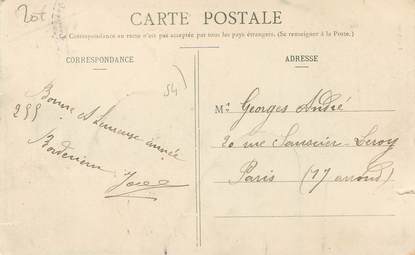 20f
CARTE POSTALE
La Correspondance au recto n'est pas acceptée par tous les pays étrangers. (Se renseigner à la Poste.)
CORRESPONDANCE
ADRESSE
54)
Bonne et heureuse année
255
Mr Georges André
20 rue Saussier-Leroy
Paris (17 arrond)